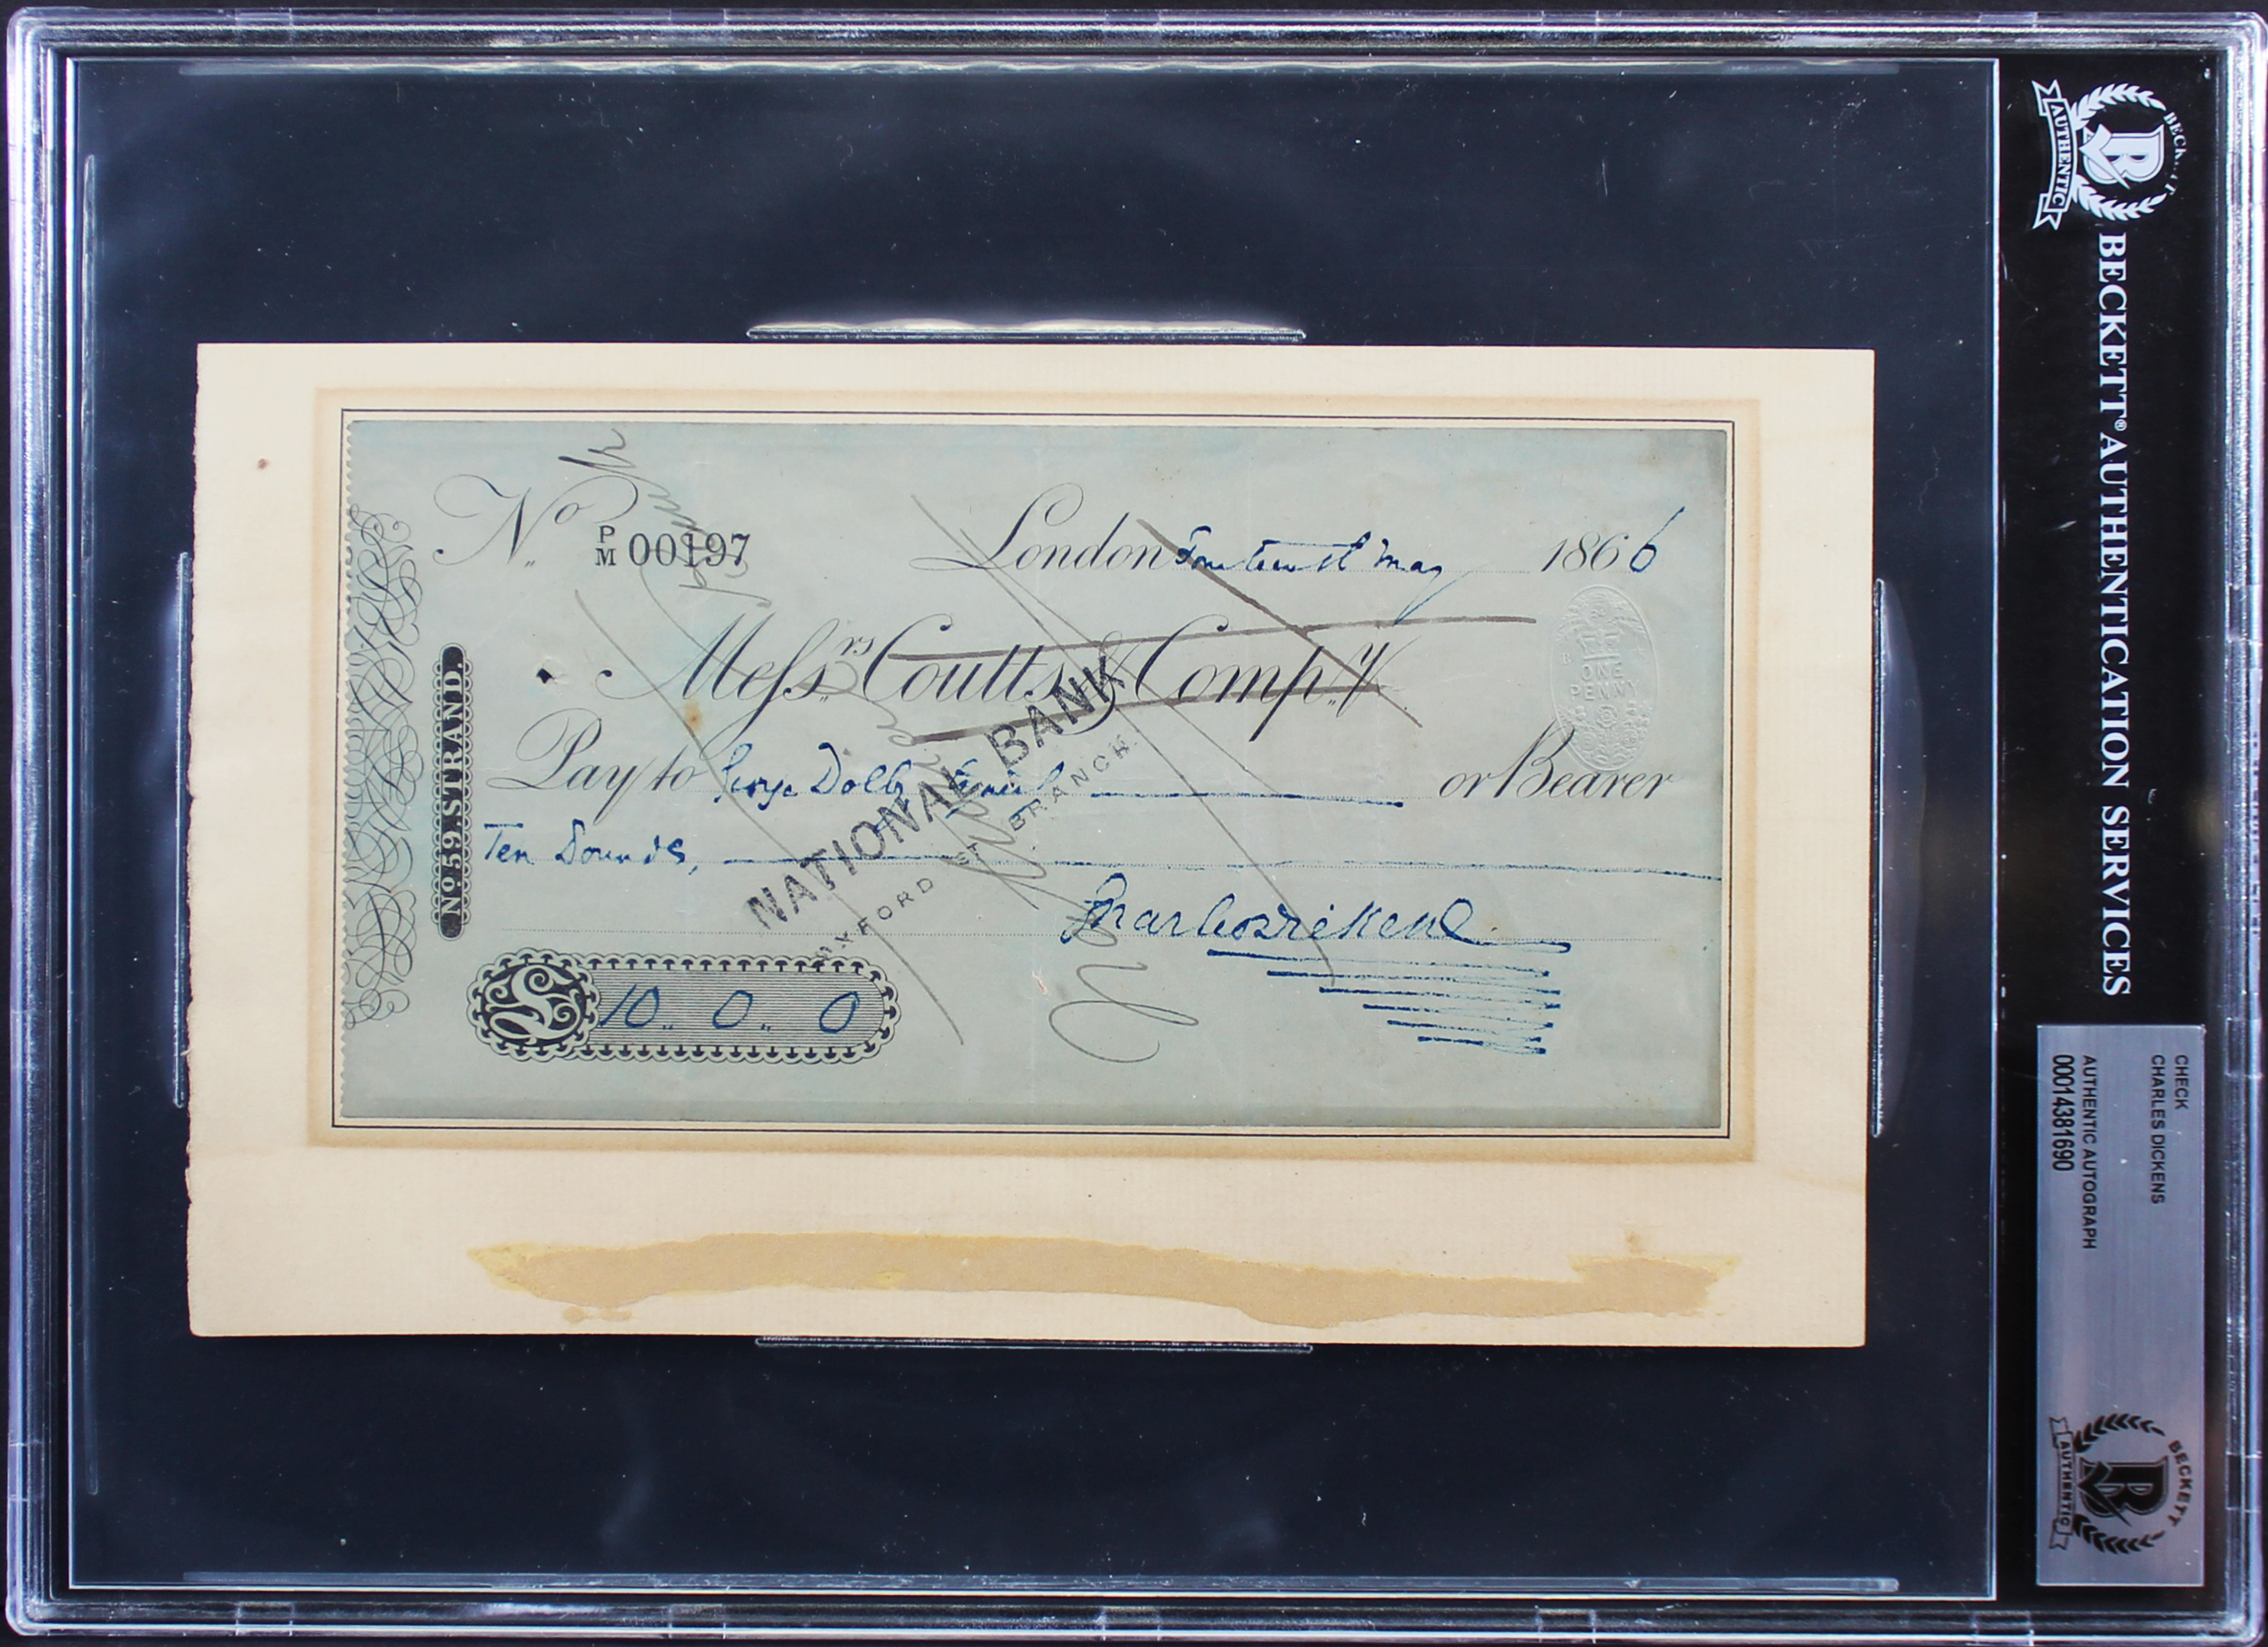 No. P/M 00197
London Fourteenth May 1866
Messrs. Coutts & Compy.
Pay to George Dolby Esquire or Bearer
Ten Pounds,
Charles Dickens
£ 10.. 0.. 0
No. 59. STRAND.
ONE PENNY
NATIONAL BANK
OXFORD ST BRANCH.
BECKETT AUTHENTIC
BECKETT® AUTHENTICATION SERVICES
CHECK
CHARLES DICKENS
AUTHENTIC AUTOGRAPH
00014381690
BECKETT AUTHENTIC